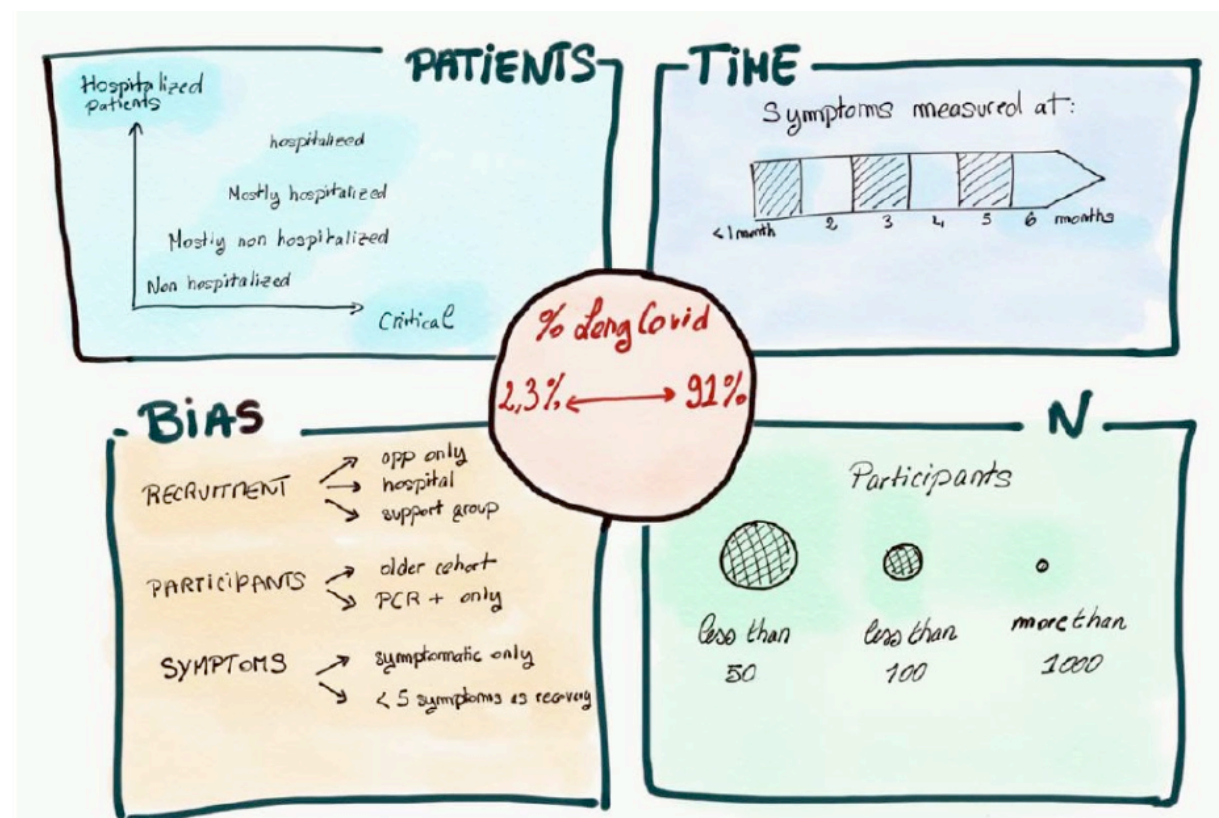 PATIENTS
Hospitalized
patients
hospitalized
Mostly hospitalized
Mostly non hospitalized
Non hospitalized
Critical
TIME
Symptoms measured at:
<1 month 2 3 4 5 6 months
% Long Covid
2,3% 91%
BIAS
RECRUITMENT
opp only
hospital
support group
PARTICIPANTS
older cohort
PCR + only
SYMPTOMS
symptomatic only
< 5 symptoms as recovery
N
Participants
less than
50
less than
100
more than
1000